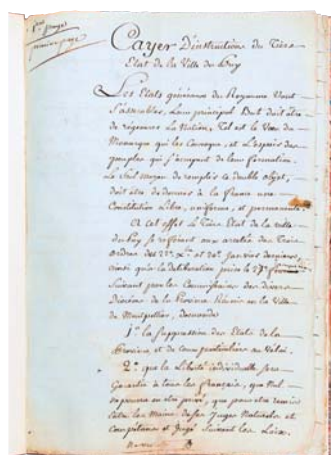 1ere page
première page
Cayer D'instructions du Tiers
Etat de la Ville du Puy
Les Etats généraux du Royaume Vont
S'assembler, Leur principal But doit être
de régénérer La Nation, Tel est le Vœu du
Monarque qui les Convoque, et L'espoir des
peuples qui s'occupent de leur formation.
Le seul moyen de remplir ce double objet,
doit être de donner à la france une
Constitution Libre, uniforme, et permanente.
A cet effet le Tiers Etat de la ville
du Puy se référant aux arrêtés des Trois
Ordres des 22e Xbre et 20e Janvier derniers,
ainsi qu'à la délibération prise le 27e
Suivant par les Commissaires des divers
Diocèses de la Province Réunis en la Ville
de Montpellier, demande
1° la suppression des Etats de la
Province, et de ceux particuliers au Velai.
2° que la Liberté individuelle sera
Garantie à tous les français, que Nul
ne pourra en être privé, que pour être remis
entre les Mains de ses Juges Naturels et
Compétens et Jugé Suivant les Loix.